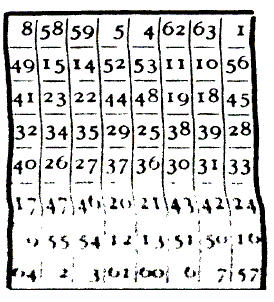 8 58 59 5 4 62 63 1
49 15 14 52 53 11 10 56
41 23 22 44 48 19 18 45
32 34 35 29 25 38 39 28
40 26 27 37 36 30 31 33
17 47 46 20 21 43 42 24
9 55 54 12 13 51 50 16
64 2 3 61 60 6 7 57